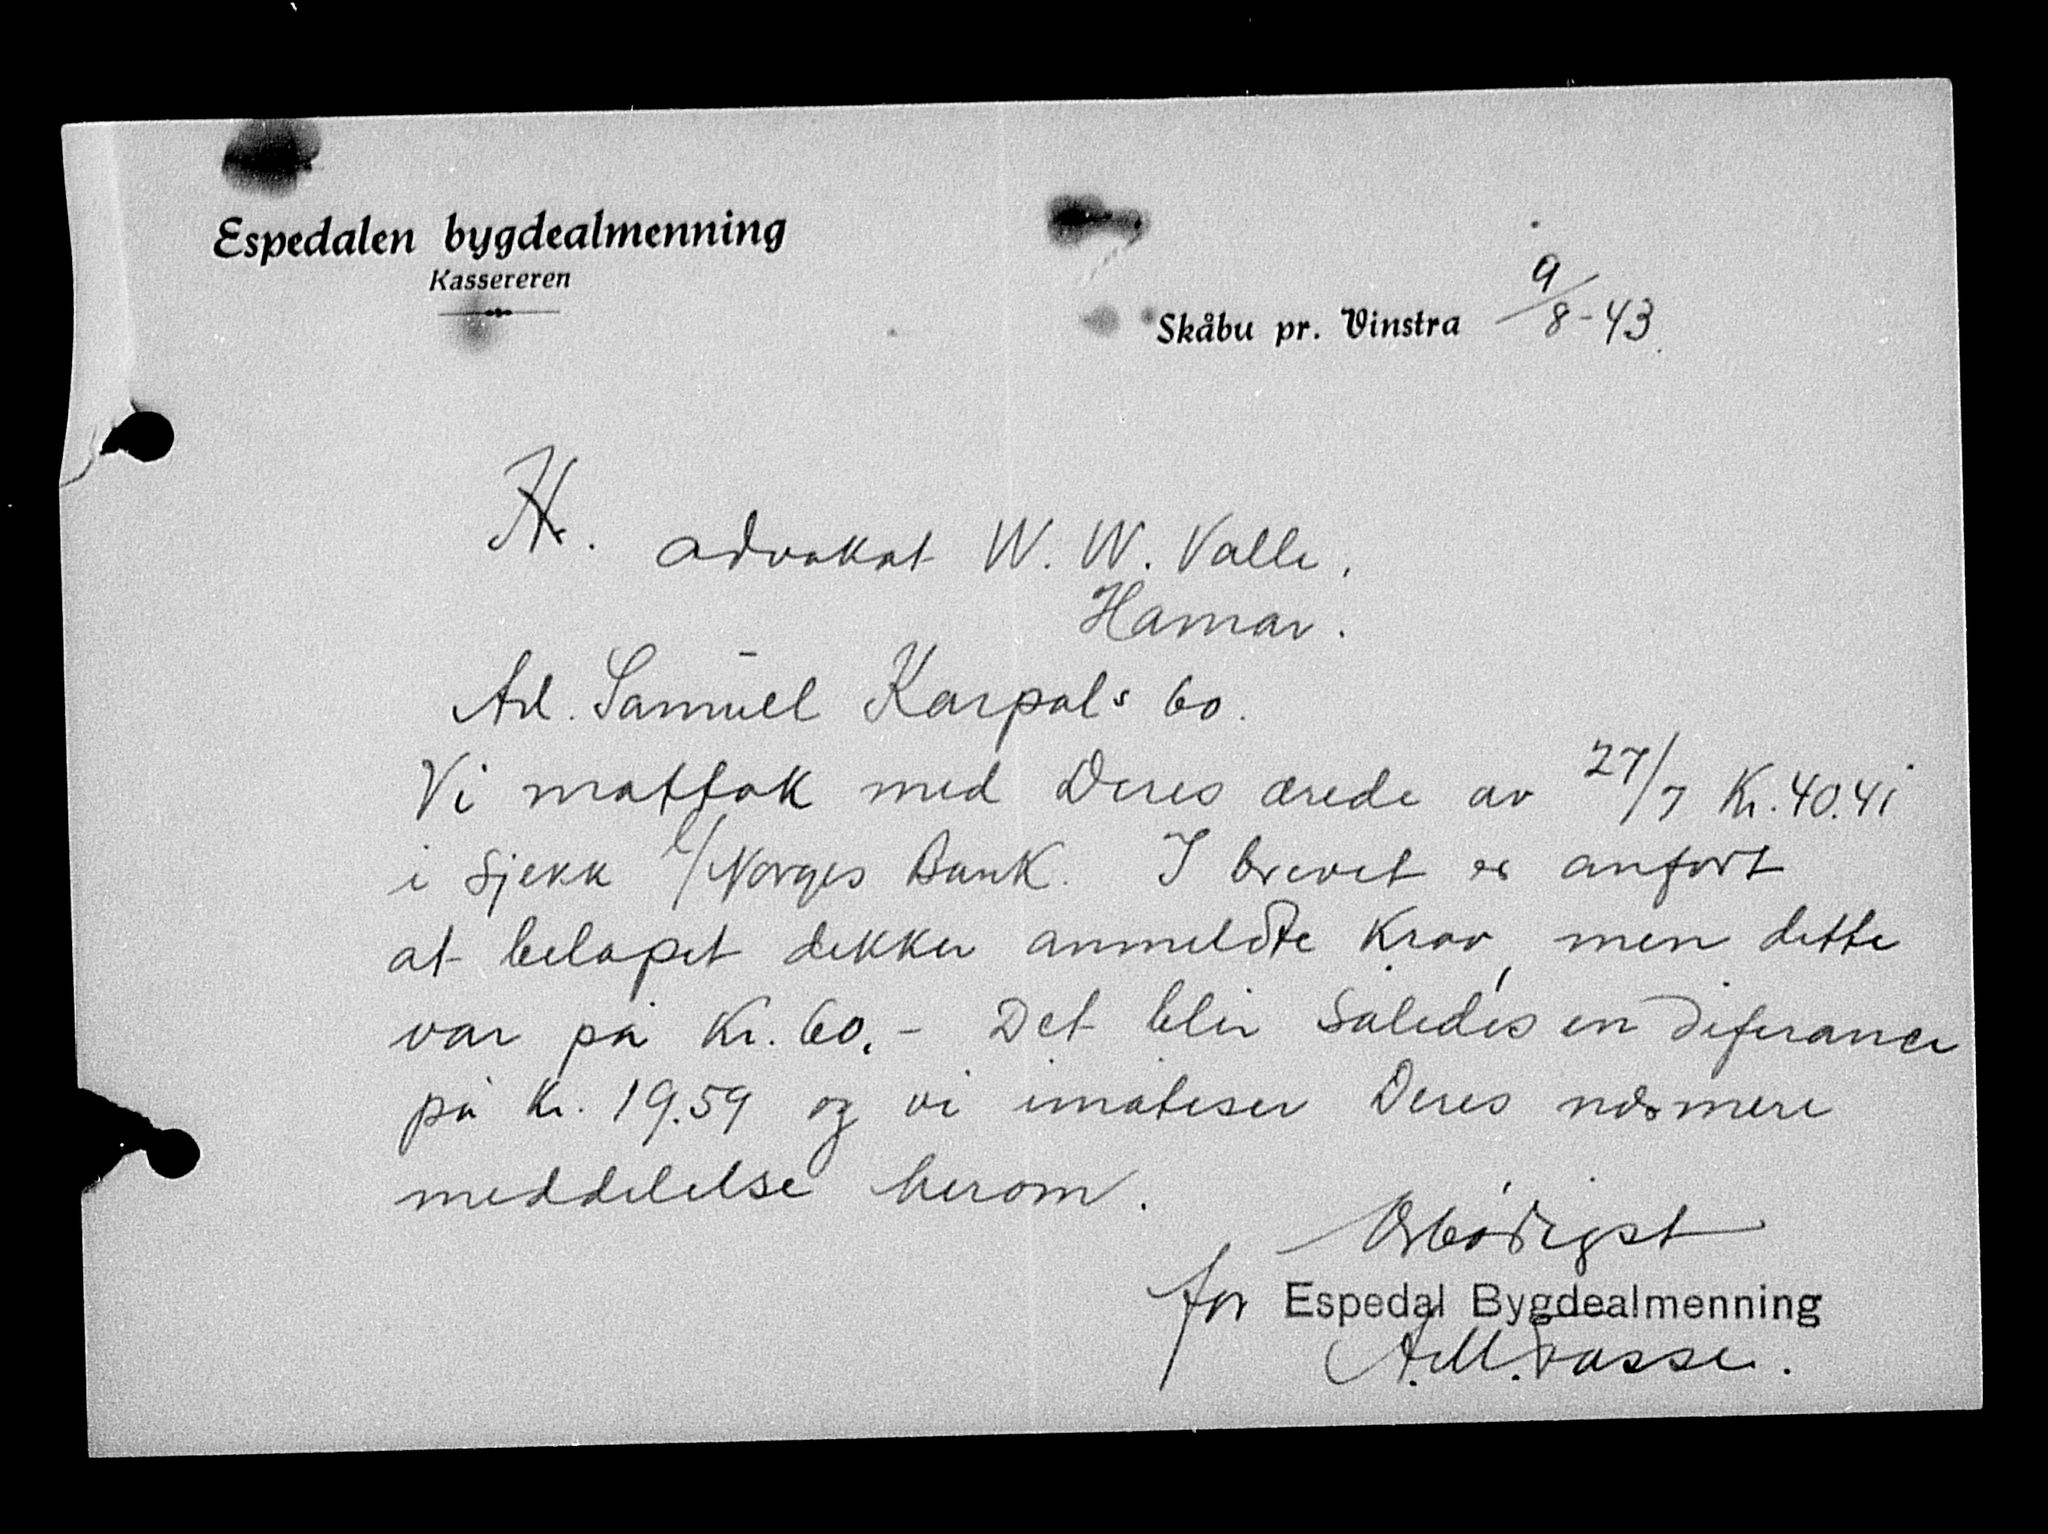 Espedalen bygdealmenning
Kassereren
Skåbu pr. Vinstra 9/8-43.
Hr. advokat W. W. Valle,
Hamar.
Ad. Samuel Karpols bo.
Vi mottok med Deres ærede av 27/7 Kr. 40.41
i sjekk p/Norges Bank. I brevet er anført
at beløpet dekker anmeldte krav, men dette
var på Kr. 60.- Det blir således en diferance
på Kr. 19.59 og vi imøteser Deres nærmere
meddelelse herom.
Ærbødigst
for Espedal Bygdealmenning